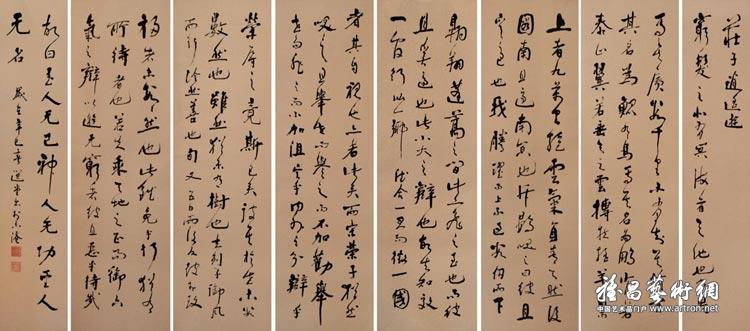 莊子逍遥遊
窮髮之北有冥海者天池也有
魚焉其廣數千里未有知其修者
其名為鯤有鳥焉其名為鵬背若
泰山翼若垂天之雲摶扶搖羊角而
上者九萬里絕雲氣負青天然後
圖南且適南冥也斥鴳笑之曰彼且
奚適也我騰躍而上不過數仞而下
翱翔蓬蒿之間此亦飛之至也而彼
且奚適也此小大之辯也故夫知效
一官行比一鄉德合一君而徵一國
者其自視也亦若此矣而宋榮子猶然
笑之且舉世而譽之而不加勸舉
世而非之而不加沮定乎內外之分辯乎
榮辱之竟斯已矣彼其於世未數
數然也雖然猶未有樹也夫列子御風
而行泠然善也旬又五日而後反彼於致
福者未數數然也此雖免乎行猶有
所待者也若夫乘天地之正而御六
氣之辯以遊无窮者彼且惡乎待哉
故曰至人无己神人无功聖人
无名
雅昌藝術網
中国艺术品门户 www.artron.net